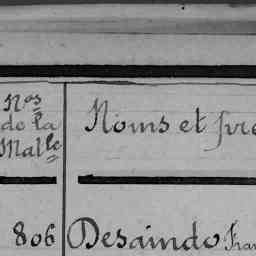 Nos
de la
Malle
Noms et pré
806 Desaindo Fran